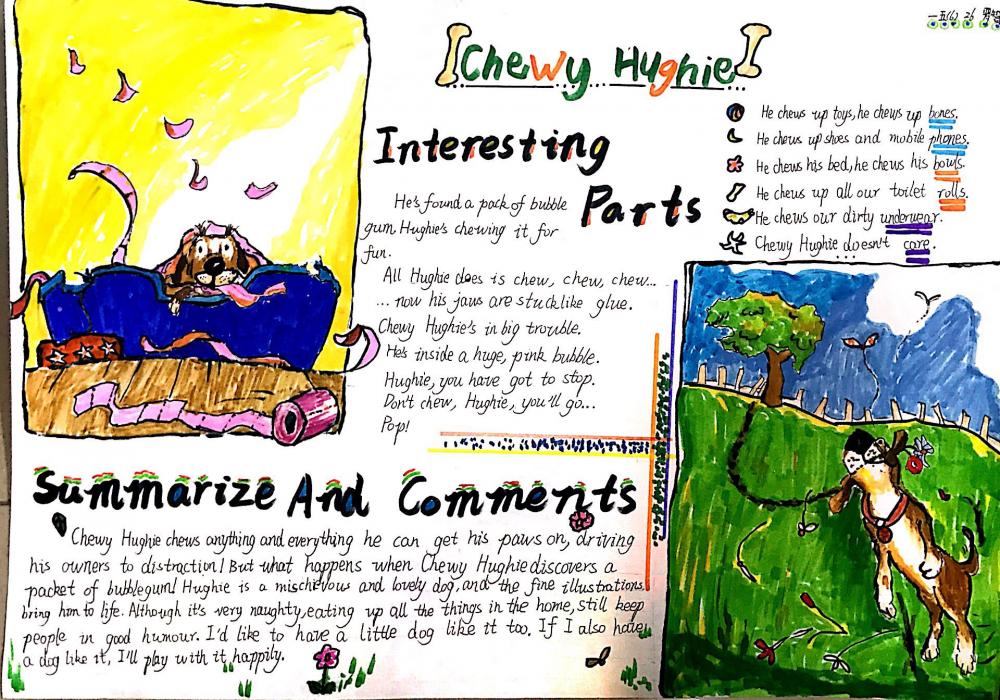 Chewy Hughie
He chews up toys, he chews up bones.
He chews up shoes and mobile phones.
He chews his bed, he chews his bowls.
He chews up all our toilet rolls.
He chews our dirty underwear.
Chewy Hughie doesn't care.
Interesting
Parts
He's found a pack of bubble
gum. Hughie's chewing it for
fun.
All Hughie does is chew, chew, chew...
... now his jaws are stuck like glue.
Chewy Hughie's in big trouble.
He's inside a huge, pink bubble.
Hughie, you have got to stop.
Don't chew, Hughie, you'll go...
Pop!
Summarize And Comments
Chewy Hughie chews anything and everything he can get his paws on, driving
his owners to distraction! But what happens when Chewy Hughie discovers a
packet of bubblegum! Hughie is a mischievous and lovely dog, and the fine illustrations
bring him to life. Although it's very naughty, eating up all the things in the home, still keep
people in good humour. I'd like to have a little dog like it too. If I also have
a dog like it, I'll play with it happily.